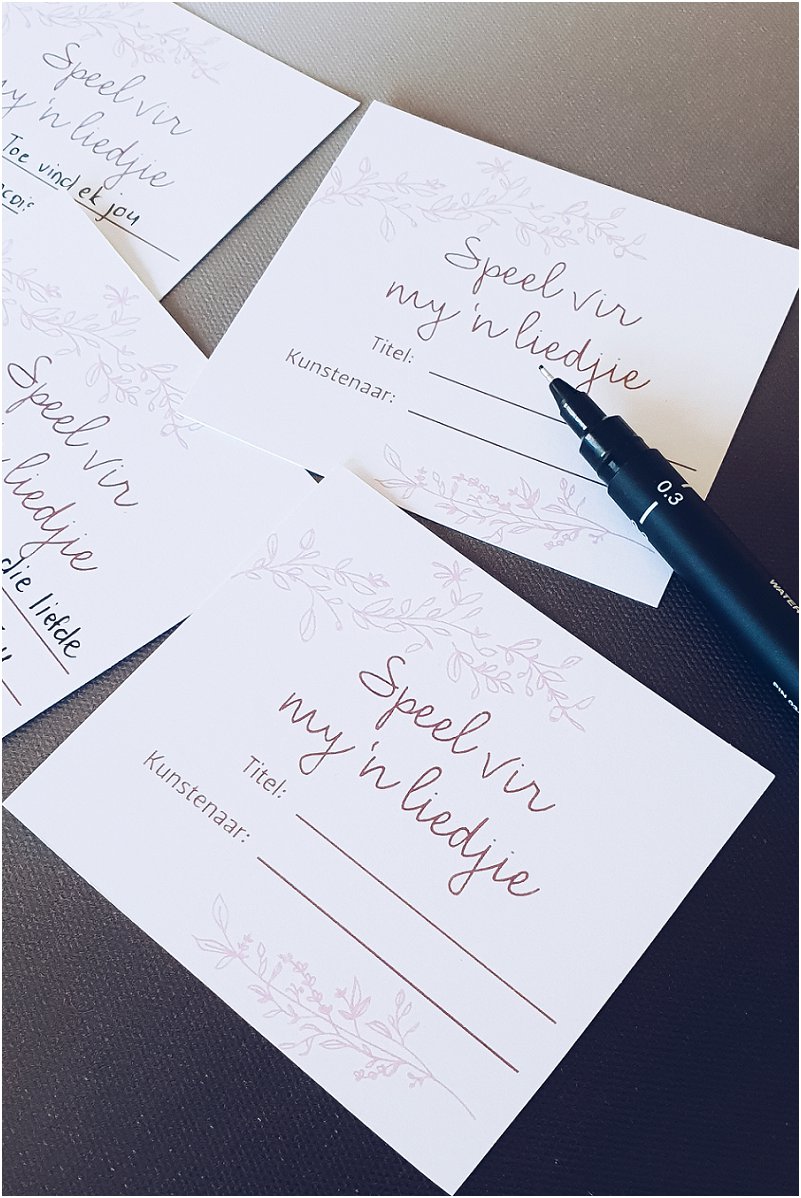 Speel vir
my 'n liedjie
Toe vind ek jou
Speel vir
my 'n liedjie
Titel:
Kunstenaar:
0.3
Speel vir
'n liedjie
die liefde
Speel vir
my 'n liedjie
Titel:
Kunstenaar: